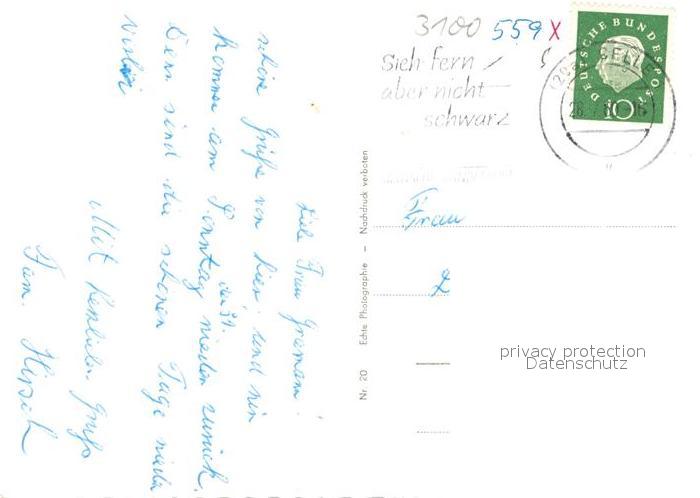 3100 559 X
Sieh fern
aber nicht
schwarz
DEUTSCHE BUNDESPOST
10
CELLE
Liebe Frau
schöne Grüße von hier, und wir
kommen am Sonntag wieder zurück.
den 31.
Dern sind die schönen Tage wieder
vorbei
Mit herzlichen Gruß
Fam. Hirsch
Nr. 20 Echte Photographie – Nachdruck verboten
Frau
privacy protection
Datenschutz